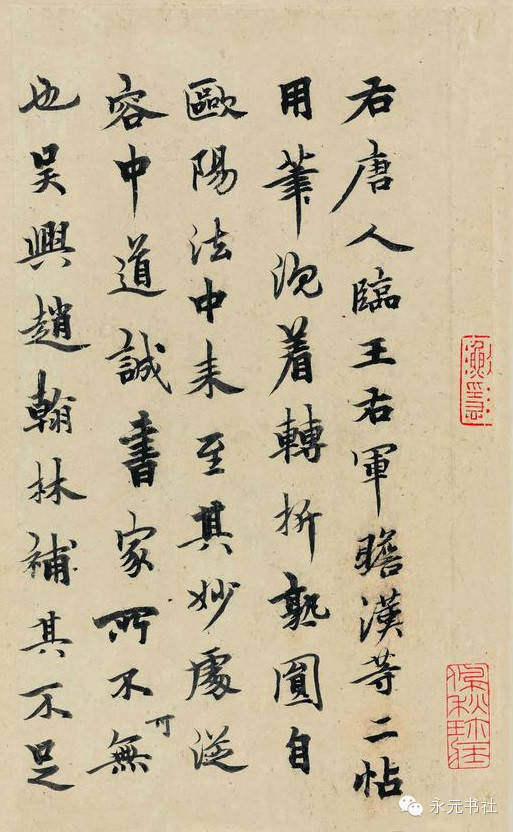 右唐人臨王右軍瞻漢等二帖
用筆沉着轉折熟圓自
歐陽法中来至其妙處從
容中道誠書家所不可無
也吴興趙翰林補其不足
永元书社